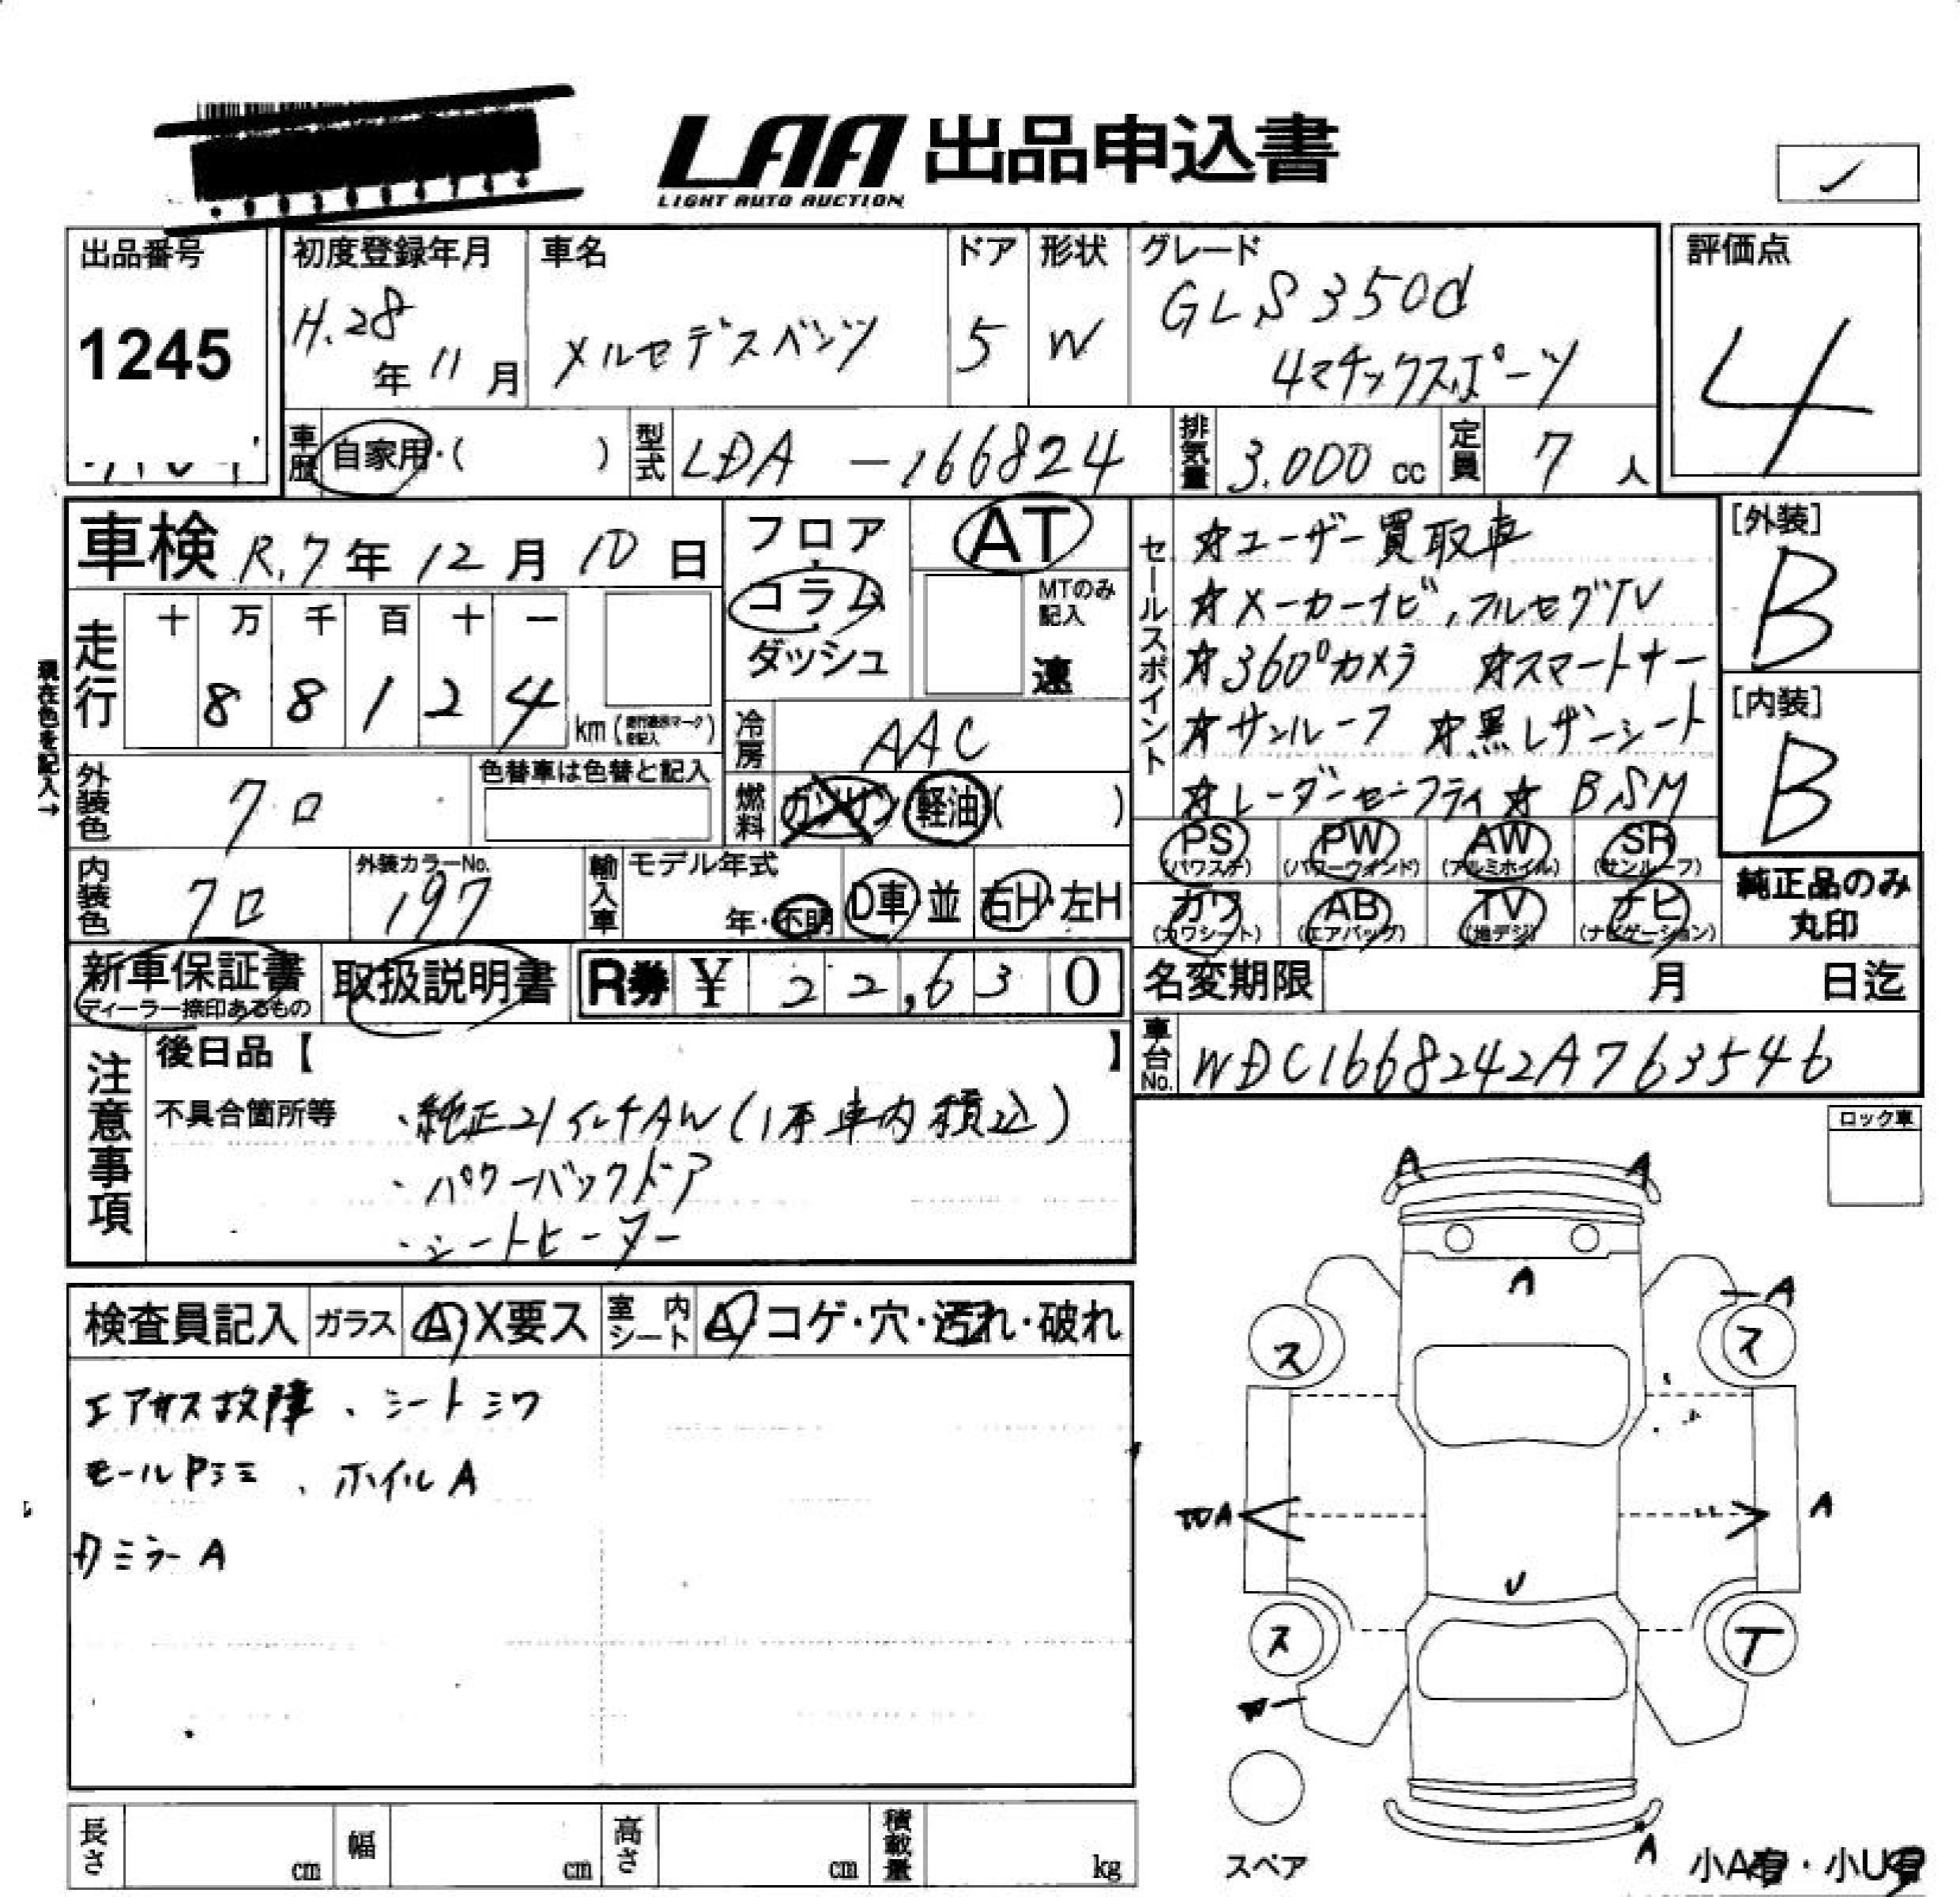 LAA 出品申込書
LIGHT AUTO AUCTION
✓
出品番号
1245
初度登録年月
H.28年11月
車名
メルセデスベンツ
ドア
5
形状
W
グレード
GLS350d
4マチックスポーツ
評価点
4
車歴
自家用・( )
型式
LDA-166824
排気量
3.000cc
定員
7人
車検 R.7年12月10日
フロア
コラム
ダッシュ
AT
MTのみ記入
速
走行
十 万 千 百 十 一
8 8 1 2 4
km
現在色を記入→
冷房
AAC
外装色
クロ
色替車は色替と記入
燃料
ガソリン 軽油( )
内装色
クロ
外装カラーNo.
197
輸入車
モデル年式
年・不明
D車・並
右H・左H
新車保証書
ディーラー捺印あるもの
取扱説明書
R券 ¥ 22,630
セールスポイント
☆ユーザー買取車
☆メーカーナビ,フルセグTV
☆360°カメラ ☆スマートキー
☆サンルーフ ☆黒レザーシート
☆レーダーセーフティ☆BSM
[外装]
B
[内装]
B
PS
(パワステ)
PW
(パワーウィンド)
AW
(アルミホイル)
SR
(サンルーフ)
カワ
(カワシート)
AB
(エアバッグ)
TV
(地デジ)
ナビ
(ナビゲーション)
純正品のみ
丸印
名変期限 月 日迄
車台No.
WDC1668242A763546
注意事項
後日品【 】
不具合箇所等
・純正21インチAW(1本車内積込)
・パワーバックドア
・シートヒーター
検査員記入
ガラス
A・X要ス
室内シート
A・コゲ・穴・汚れ・破れ
エアサス故障、シートシワ
モールシミ、ホイルA
ミラーA
ロック車
A
A
A
A
ス
ス
A
A
U
ス
T
A
スペア
小A有・小U有
長さ cm
幅 cm
高さ cm
積載量 kg